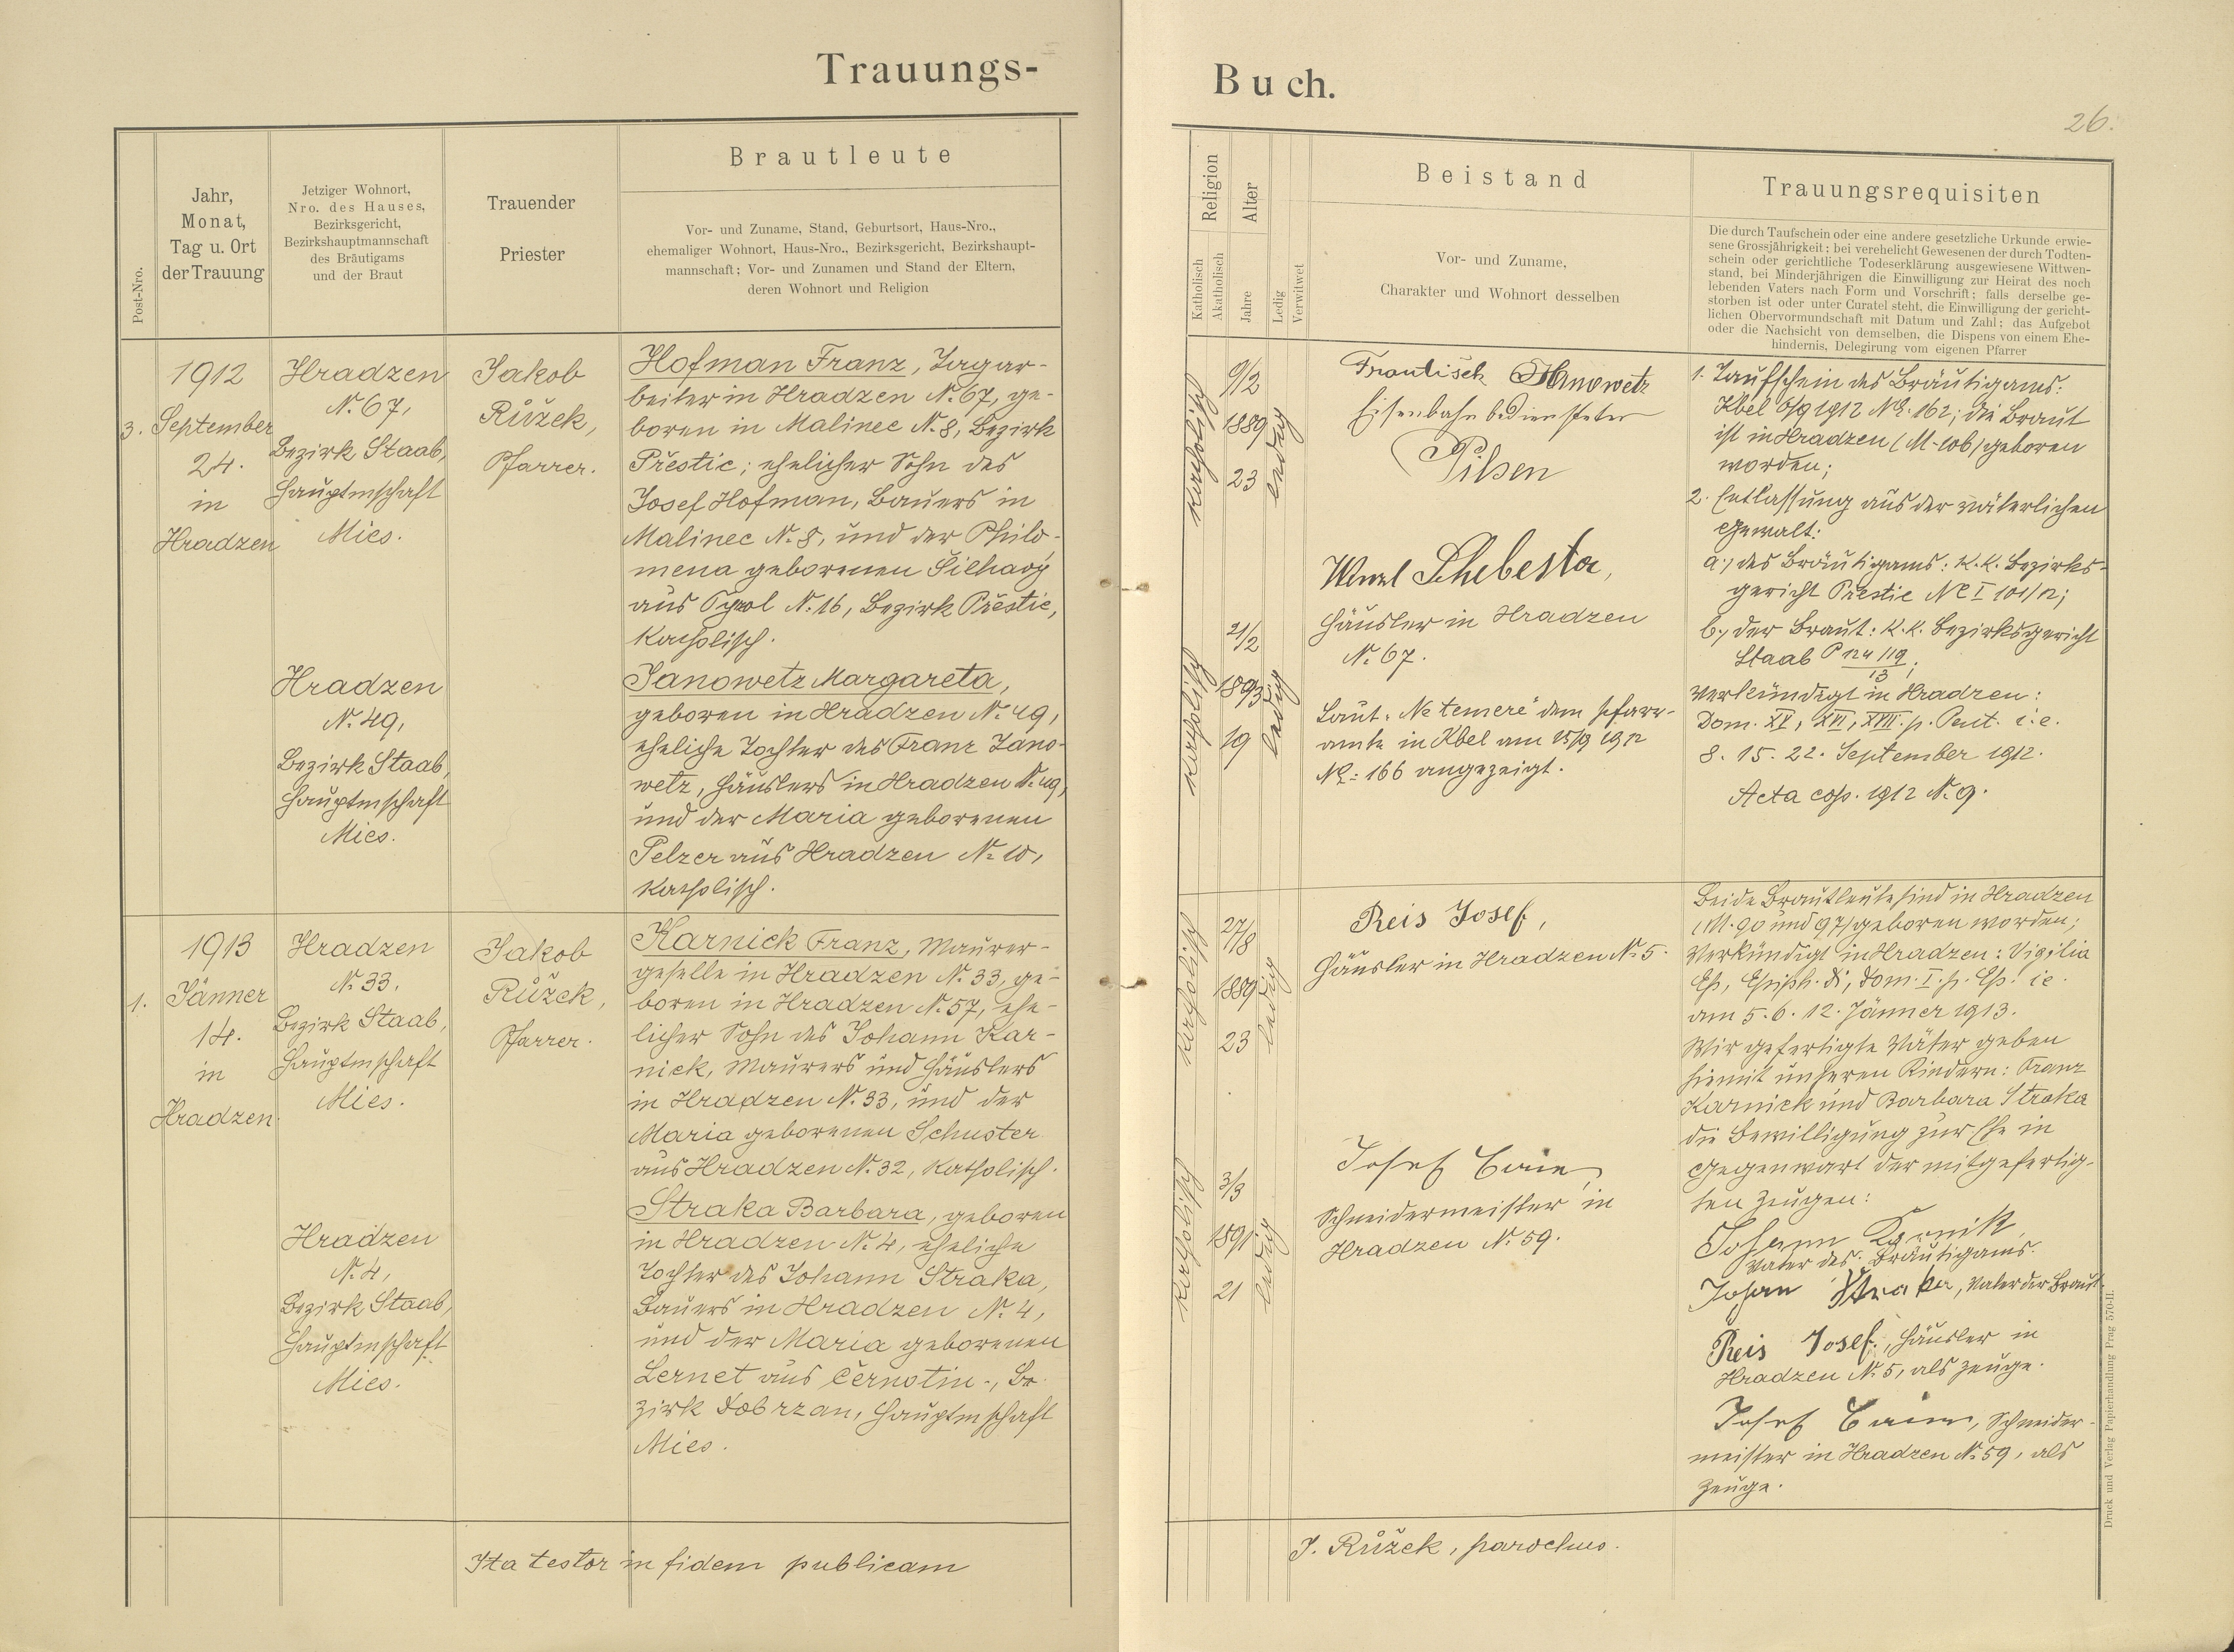 Trauungs-
Post-Nro.
Jahr,
Monat,
Tag u. Ort
der Trauung
Jetziger Wohnort,
Nro. des Hauses,
Bezirksgericht,
Bezirkshauptmannschaft
des Bräutigams
und der Braut
Trauender
Priester
Brautleute
Vor- und Zuname, Stand, Geburtsort, Haus-Nro.,
ehemaliger Wohnort, Haus-Nro., Bezirksgericht, Bezirkshaupt-
mannschaft; Vor- und Zunamen und Stand der Eltern,
deren Wohnort und Religion
3.
1912
September
24.
in
Hradzen
Hradzen
N. 67,
Bezirk Staab,
Hauptmschaft
Mies.
Jakob
Růžek,
Pfarrer.
Hofman Franz, Tagar-
beiter in Hradzen N. 67, ge-
boren in Malinec N. 8, Bezirk
Přestic; ehelicher Sohn des
Josef Hofman, Bauers in
Malinec N. 8, und der Philo-
mena geborenen
aus N. 16, Bezirk Přestic,
katholisch.
Hradzen
N. 49,
Bezirk Staab,
Hauptmschaft
Mies.
Janowetz Margareta,
geboren in Hradzen N. 49,
eheliche Tochter des Franz Jano-
wetz, Häuslers in Hradzen N. 49,
und der Maria geborenen
Pelzer aus Hradzen N. 10,
katholisch.
1.
1913
Jänner
14.
in
Hradzen.
Hradzen
N. 33,
Bezirk Staab,
Hauptmschaft
Mies.
Jakob
Růžek,
Pfarrer.
Karnick Franz, Maurer-
geselle in Hradzen N. 33, ge-
boren in Hradzen N. 57, ehe-
licher Sohn des Johann Kar-
nick, Maurers und Häuslers
in Hradzen N. 33, und der
Maria geborenen Schuster
aus Hradzen N. 32, katholisch.
Hradzen
N. 4,
Bezirk Staab,
Hauptmschaft
Mies.
Straka Barbara, geboren
in Hradzen N. 4, eheliche
Tochter des Johann Straka,
Bauers in Hradzen N. 4,
und der Maria geborenen
Lernet aus Černotin, Be-
zirk Dobrzan, Hauptmschaft
Mies.
Ita testor in fidem publicam
Buch.
26.
Religion
Katholisch
Akatholisch
Alter
Jahre
Ledig
Verwitwet
Beistand
Vor- und Zuname,
Charakter und Wohnort desselben
Trauungsrequisiten
Die durch Taufschein oder eine andere gesetzliche Urkunde erwie-
sene Grossjährigkeit; bei verehelicht Gewesenen der durch Todten-
schein oder gerichtliche Todeserklärung ausgewiesene Wittwen-
stand, bei Minderjährigen die Einwilligung zur Heirat des noch
lebenden Vaters nach Form und Vorschrift; falls derselbe ge-
storben ist oder unter Curatel steht, die Einwilligung der gericht-
lichen Obervormundschaft mit Datum und Zahl; das Aufgebot
oder die Nachsicht von demselben, die Dispens von einem Ehe-
hindernis, Delegirung vom eigenen Pfarrer
katholisch
9/2
1889
23
ledig
Frantisek Hanowetz
Eisenbahnbediensteter
Pilsen
katholisch
21/2
1893
19
ledig
Wenzl Schebesta,
Häusler in Hradzen
N. 67.
Laut "Ne temere" dem Pfarr-
amte in Kbel am 25/9 1912
No: 166 angezeigt.
1. Taufschein des Bräutigams:
Kbel 6/9 1912 No. 162; die Braut
ist in Hradzen (M-106) geboren
worden;
2. Entlassung aus der väterlichen
Gewalt:
a.) des Bräutigams: K.K. Bezirks-
gericht Přestic Nc I 101/12;
b.) der Braut: K.K. Bezirksgericht
Staab P 124/19
13;
Verkündigt in Hradzen:
Dom. XV, XVI, XVII. p. Pent. i.e.
8. 15. 22. September 1912.
Acta cop. 1912 N. 9.
katholisch
27/8
1889
23
ledig
Reis Josef,
Häusler in Hradzen N. 5.
katholisch
3/3
1891
21
ledig
Josef
Schneidermeister in
Hradzen N. 59.
Beide Brautleute sind in Hradzen
(M. 90 und 97) geboren worden;
Verkündigt in Hradzen: Vigilia
Ep, Epiph. Di, Dom. I. p. Ep. ie.
am 5. 6. 12. Jänner 1913.
Wir gefertigte Väter geben
hiemit unseren Kindern: Franz
Karnick und Barbara Straka
die Bewilligung zur Ehe in
Gegenwart der mitgefertig-
ten Zeugen:
Johann Karnik,
Vater des Bräutigams.
Johan Straka, Vater der Braut.
Reis Josef, Häusler in
Hradzen N. 5, als Zeuge.
Josef Schneider-
meister in Hradzen N. 59, als
Zeuge.
J. Růžek, parochus.
Druck und Verlag Papierhandlung Prag 570-II.